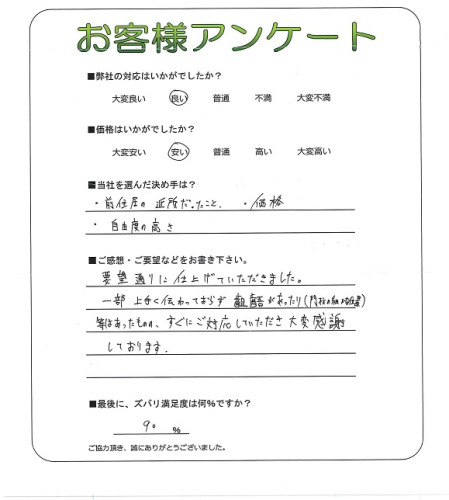 お客様アンケート
■弊社の対応はいかがでしたか?
大変良い 良い 普通 不満 大変不満
■価格はいかがでしたか?
大変安い 安い 普通 高い 大変高い
■当社を選んだ決め手は?
・前住居の近所だったこと、 ・価格
・自由度の高さ
■ご感想・ご要望などをお書き下さい。
要望通りに仕上げていただきました。
一部上手く伝わっておらず齟齬があったり(
等はあったものの、すぐにご対応していただき大変感謝
しております.
■最後に、ズバリ満足度は何%ですか?
90 %
ご協力頂き、誠にありがとうございました。